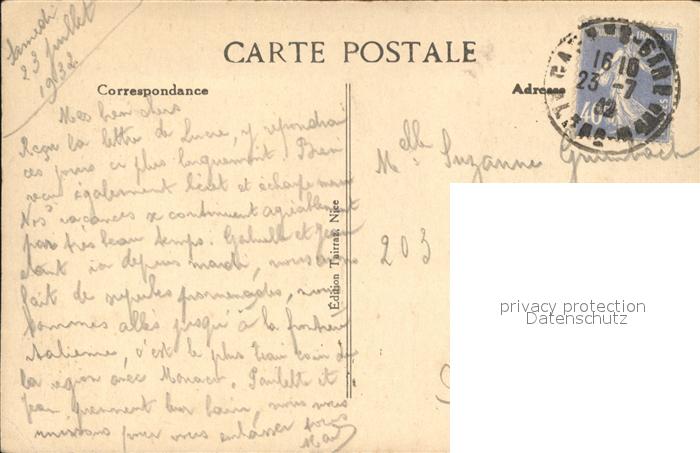 Samedi
23 juillet
1932
CARTE POSTALE
Correspondance
Adresse
FRANÇAISE
16 10
23 -7
32
40c
Mes bien chers
Reçu la lettre de Lucie, y répondrai
ces jours ci plus longuement. Bien
reçu également béret et écharpe
Nos vacances se continuent agréablement
par très beau temps. Gabrielle et Jean
étant ici depuis mardi, nous avons
fait de superbes promenades, nous
sommes allés jusqu'à la frontière
italienne, c'est le plus beau coin de
la région avec Monaco. Paulette et
Jean prennent leur bain, nous nous
unissons pour vous embrasser tous
Melle Suzanne Grumbach
203
Edition Tairraz, Nice
privacy protection
Datenschutz